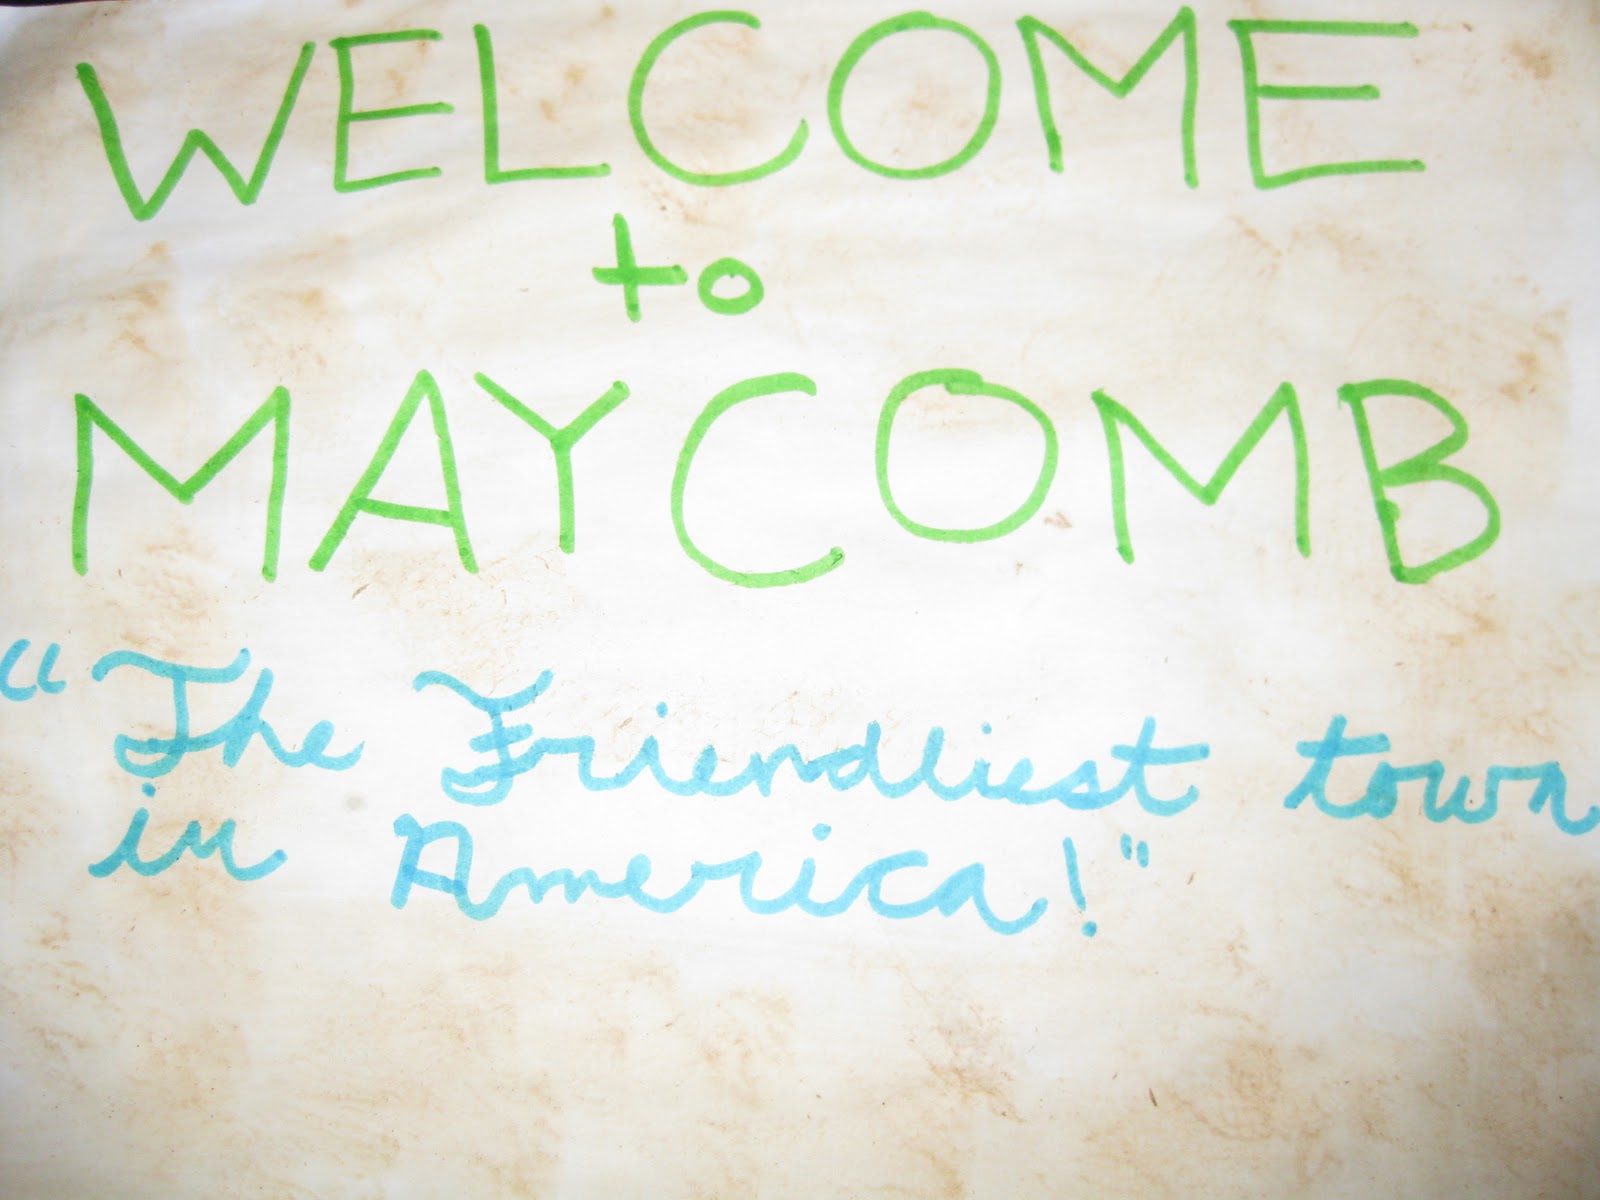 WELCOME
to
MAYCOMB
"The Friendliest town
in America!"